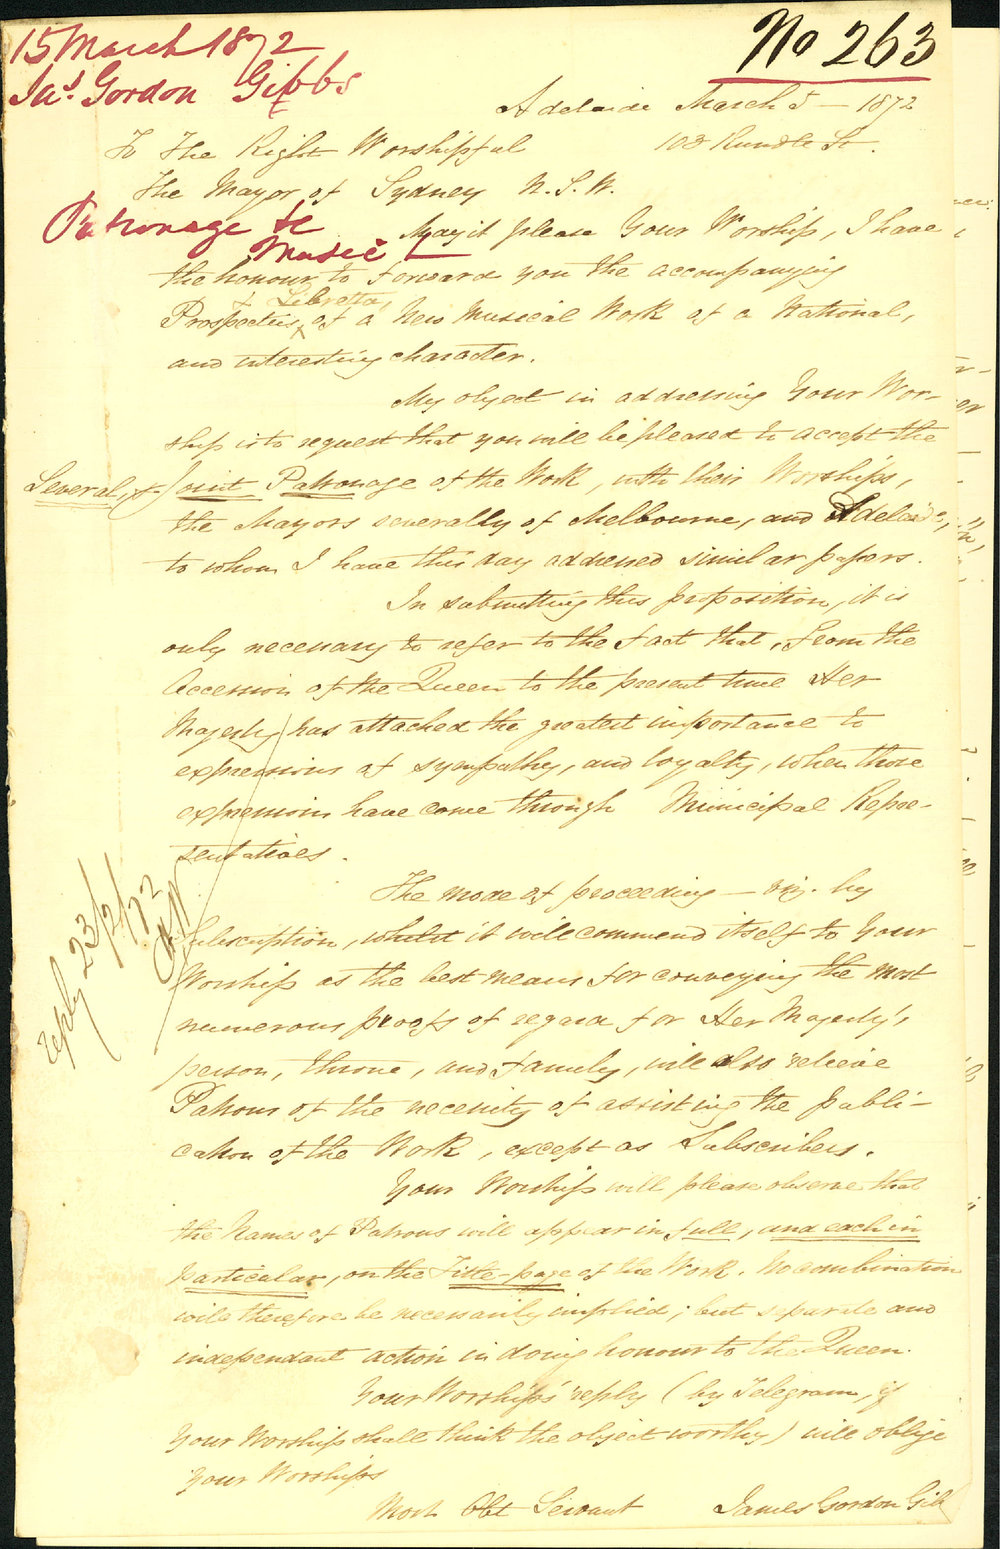 15 March 1872
Jas. Gordon Gibbs
No 263
Adelaide March 5 — 1872
To The Right Worshipful 103 Rundle St.
The Mayor of Sydney N. S. W.
Patronage to
Music
May it please Your Worship, I have
the honour to forward you the accompanying
& Libretto,
Prospectus, of a New Musical Work of a National,
and interesting character.
My object in addressing Your Wor-
ship is to request that you will be pleased to accept the
Several, & Joint Patronage of the Work, with their Worships,
the Mayors severally of Melbourne, and Adelaide,
to whom I have this day addressed similar papers.
In submitting this proposition, it is
only necessary to refer to the fact that, from the
Accession of the Queen to the present time Her
Majesty has attached the greatest importance to
expressions of sympathy, and loyalty, when those
expressions have come through Municipal Repre-
sentatives.
The mode of proceeding — viz. by
Subscription, whilst it will commend itself to Your
Worship as the best means for conveying the most
numerous proofs of regard for Her Majesty's
person, throne, and family, will also relieve
Patrons of the necessity of assisting the publi-
cation of the Work, except as Subscribers.
Your Worship will please observe that
the Names of Patrons will appear in full, and each in
particular, on the Title-page of the Work. No combination
will therefore be necessarily implied; but separate and
independant action in doing honour to the Queen.
Your Worships' reply (by Telegram, if
Your Worship shall think the object worthy) will oblige
Your Worships
Most Obt Servant James Gordon Gib
reply 23/2/72